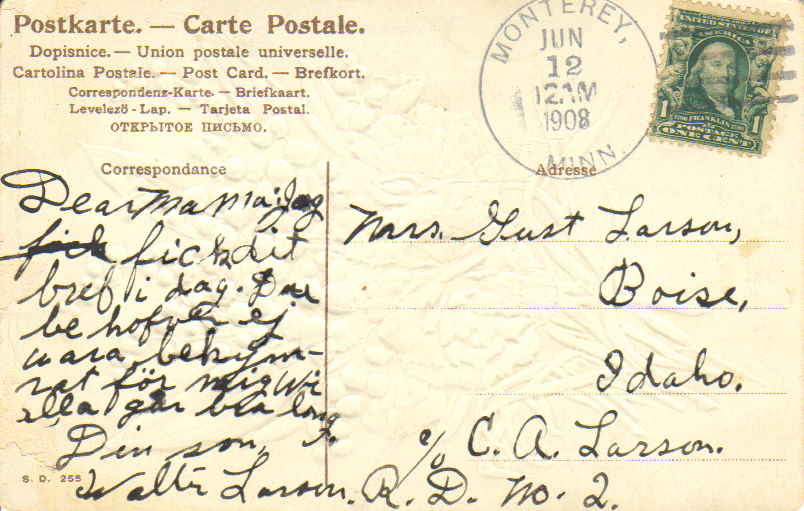 Postkarte. — Carte Postale.
Dopisnice. — Union postale universelle.
Cartolina Postale. — Post Card. — Brefkort.
Correspondenz-Karte. — Briefkaart.
Levelező-Lap. — Tarjeta Postal.
ОТКРЫТОЕ ПИСЬМО.
MONTEREY,
JUN
12
12AM
1908
MINN.
UNITED STATES OF AMERICA
FRANKLIN
1 POSTAGE 1
ONE CENT
Correspondance
Dear Mama: Jag
fick fick dit
bref i dag. Du
behofver ej
wara bekym-
rat för mig Wi
alla går bra
Din son,
Walter Larson.
S. D. 255
Adresse
Mrs. Gust Larson,
Boise,
Idaho.
% C. A. Larson.
R. D. No. 2.